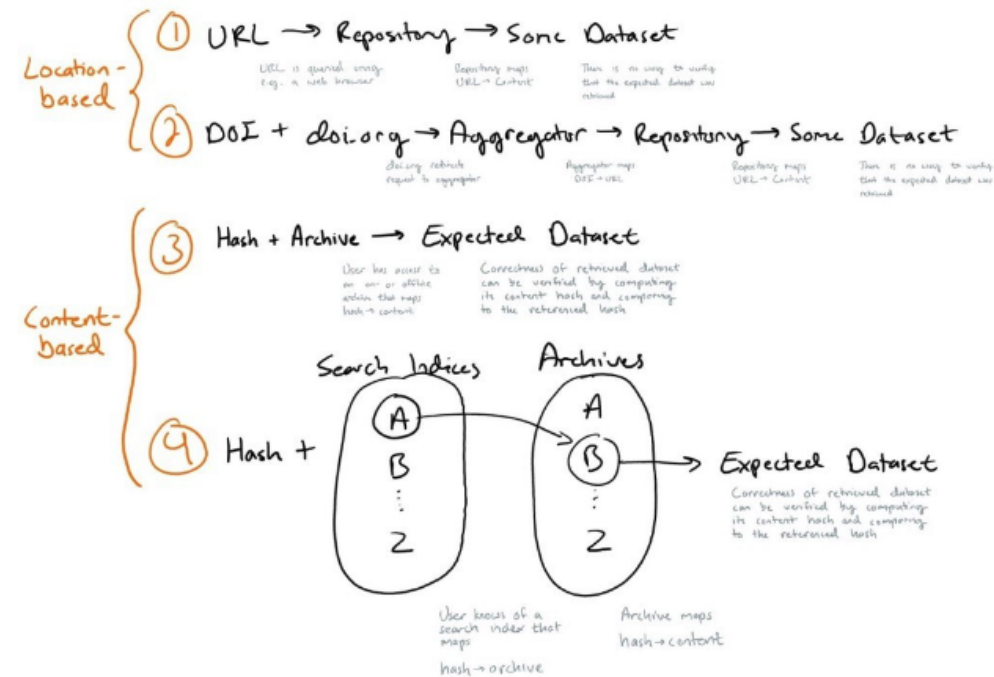 Location-
based
① URL → Repository → Some Dataset
URL is queried using
e.g. a web browser
Repository maps
URL → Content
There is no way to verify
that the expected dataset was
retrieved
② DOI + doi.org → Aggregator → Repository → Some Dataset
doi.org redirects
request to aggregator
Aggregator maps
DOI → URL
Repository maps
URL → Content
There is no way to verify
that the expected dataset was
retrieved
Content-
based
③ Hash + Archive → Expected Dataset
User has access to
an on- or offline
archive that maps
hash → content
Correctness of retrieved dataset
can be verified by computing
its content hash and comparing
to the referenced hash
④ Hash +
Search Indices
A
B
⋮
Z
Archives
A
B
⋮
Z
→ Expected Dataset
Correctness of retrieved dataset
can be verified by computing
its content hash and comparing
to the referenced hash
User knows of a
search index that
maps
hash → archive
Archive maps
hash → content